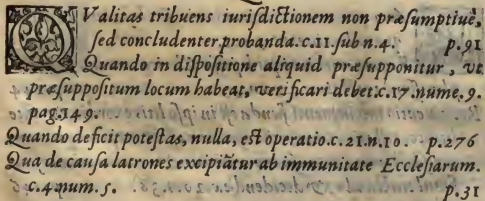 QValitas tribuens iurisdictionem non præsumptiuè,
sed concludenter probanda. c.11. sub n.4. p.91
Quando in dispositione aliquid præsupponitur, vt
præsuppositum locum habeat, verificari debet. c.17. nume. 9.
pag. 149.
Quando deficit potestas, nulla, est operatio. c. 21. n.10. p.276
Qua de causa latrones excipiãtur ab immunitate Ecclesiarum.
c.4. num. 5. p.31